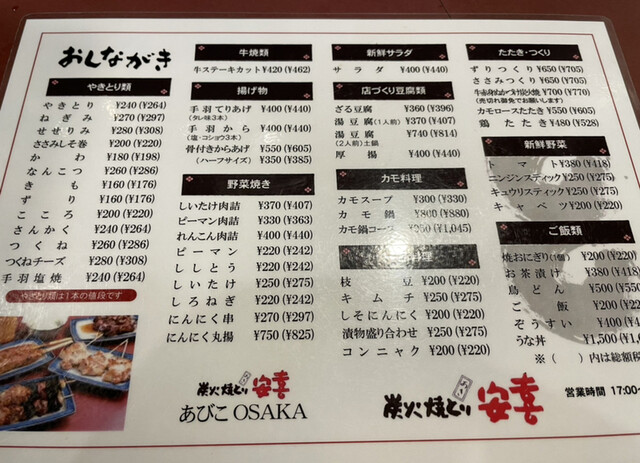 おしながき
やきとり類
やきとり ¥240 (¥264)
ねぎみ ¥270 (¥297)
せせりみ ¥280 (¥308)
ささみしそ巻 ¥200 (¥220)
かわ ¥180 (¥198)
なんこつ ¥260 (¥286)
きも ¥160 (¥176)
ずり ¥160 (¥176)
こころ ¥200 (¥220)
さんかく ¥240 (¥264)
つくね ¥260 (¥286)
つくねチーズ ¥280 (¥308)
手羽塩焼 ¥240 (¥264)
やきとり類は1本の値段です
牛焼類
牛ステーキカット ¥420 (¥462)
揚げ物
手羽てりあげ ¥400 (¥440)
(タレ味3本)
手羽から ¥400 (¥440)
(塩・コショウ3本)
骨付きからあげ ¥550 (¥605)
(ハーフサイズ) ¥350 (¥385)
野菜焼き
しいたけ肉詰 ¥370 (¥407)
ピーマン肉詰 ¥330 (¥363)
れんこん肉詰 ¥400 (¥440)
ピーマン ¥200 (¥220)
ししとう ¥200 (¥220)
しいたけ ¥250 (¥275)
しろねぎ ¥200 (¥220)
にんにく串 ¥270 (¥297)
にんにく丸揚 ¥750 (¥825)
炭火焼とり 安喜
あびこ OSAKA
新鮮サラダ
サラダ ¥400 (¥440)
店づくり豆腐類
ざる豆腐 ¥360 (¥396)
湯豆腐(1人前) ¥370 (¥407)
湯豆腐 ¥740 (¥814)
(2人前)土鍋
厚揚 ¥400 (¥440)
カモ料理
カモスープ ¥300 (¥330)
カモ鍋 ¥800 (¥880)
カモ鍋コース ¥950 (¥1,045)
料理
枝豆 ¥200 (¥220)
キムチ ¥250 (¥275)
しそにんにく ¥200 (¥220)
漬物盛り合わせ ¥250 (¥275)
コンニャク ¥200 (¥220)
炭火焼とり 安喜
たたき・つくり
ずりつくり ¥650 (¥705)
ささみつくり ¥650 (¥705)
¥700 (¥770)
(売切れ御免でお願いします)
カモロースたたき ¥550 (¥605)
鶏たたき ¥480 (¥528)
新鮮野菜
トマト ¥380 (¥418)
ニンジンスティック ¥250 (¥275)
キュウリスティック ¥250 (¥275)
キャベツ ¥200 (¥220)
ご飯類
焼おにぎり(1個) ¥200 (¥220)
お茶漬け ¥380 (¥418)
鳥どん ¥500 (¥550
ご飯 ¥200 (¥220
ぞうすい ¥400 (¥4
うな丼 ¥1,500 (¥1,
※( )内は総額税
営業時間 17:00~